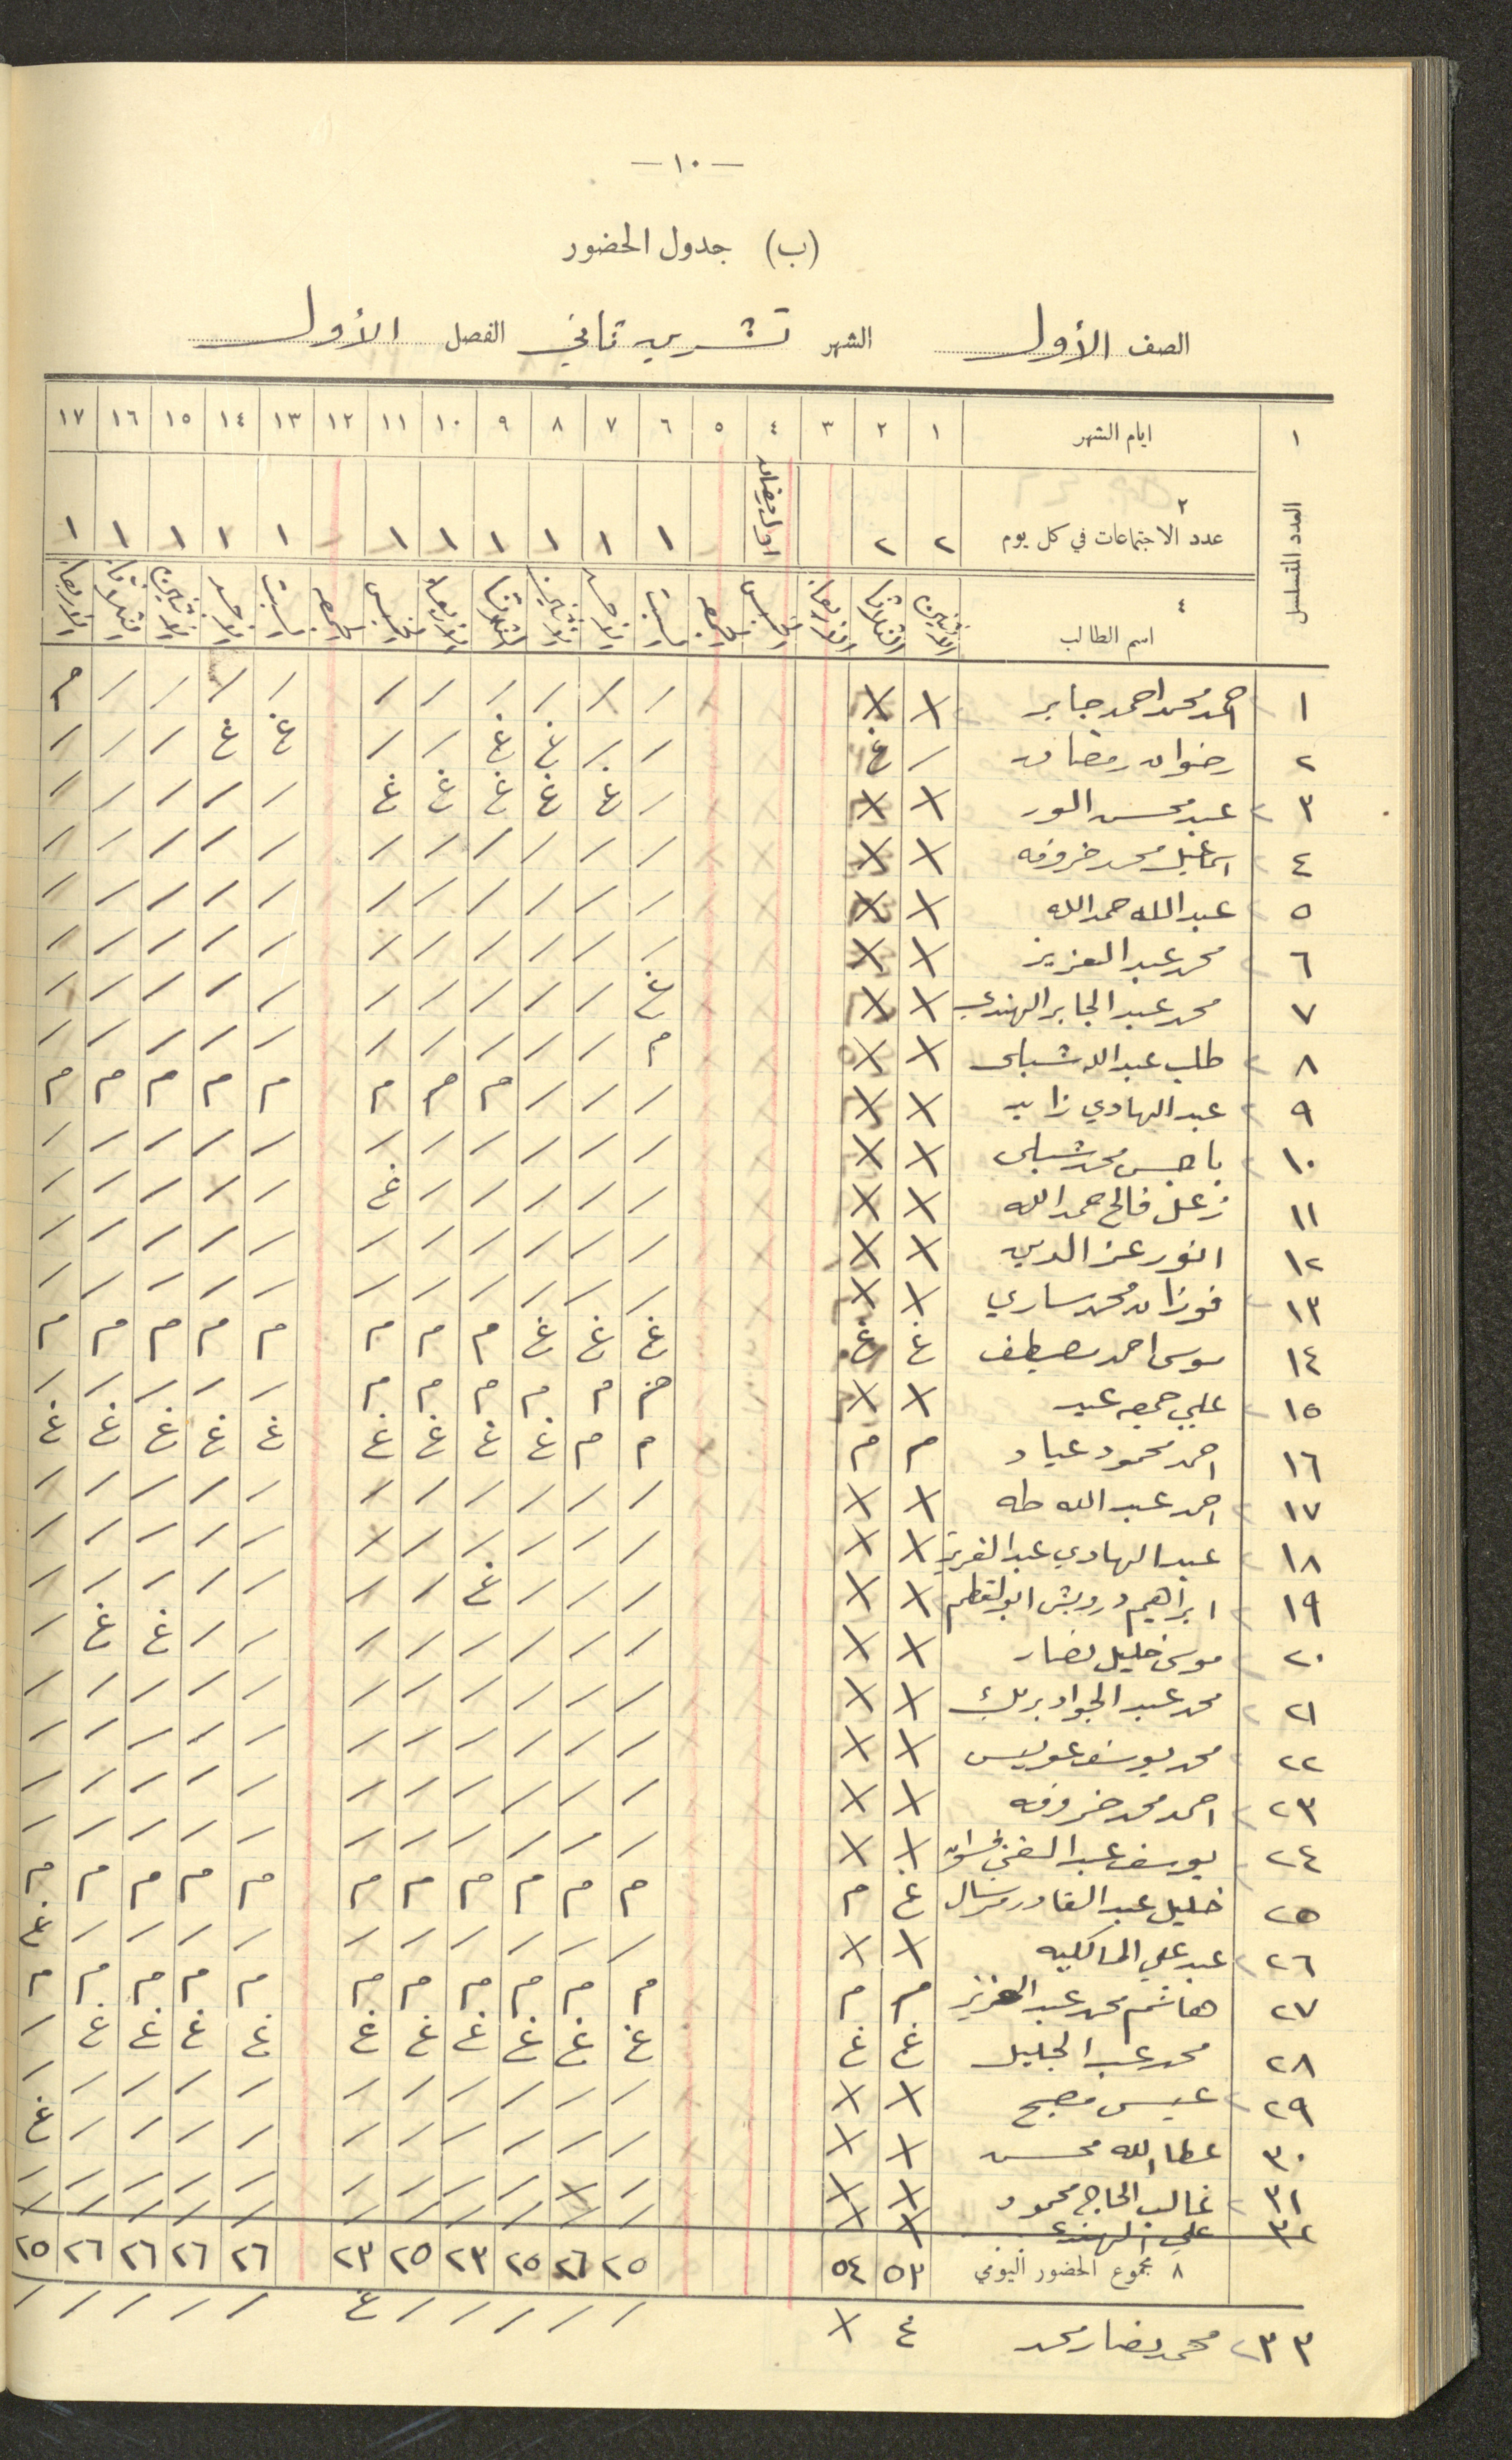 — ١٠ —
(ب) جدول الحضور
الصف الأول الشهر تشرين ثاني الفصل الأول
١ ايام الشهر ١ ٢ ٣ ٤ ٥ ٦ ٧ ٨ ٩ ١٠ ١١ ١٢ ١٣ ١٤ ١٥ ١٦ ١٧
العدد المتسلسل
٢ عدد الاجتماعات في كل يوم ٢ ٢ اول رمضان ١ ١ ١ ١ ١ ١ ١ ١ ١ ١ ١
٤ اسم الطالب الاثنين الثلاثا الاربعا الخميس الجمعه السبت الاحد الاثنين الثلاثا الاربعا الخميس الجمعه السبت الاحد الاثنين الثلاثا الاربعا
١ احمد محمد احمد جابر X X / / / / / / / / / / م
٢ رضوان رمضان / غ / / غ غ / / غ غ / / /
٣ عبد محسن X X / غ غ غ غ غ / / / / /
٤ اسماعيل محمد خروفه X X / / / / / / / / / / /
٥ عبد الله حمد الله X X / / / / / / / / / / /
٦ محمد عبد العزيز X X / / / / / / / / / / /
٧ محمد عبد الجابر الهندي X X غ / / / / / / / / / /
٨ طلب عبد الله شبلي X X م / / / / / / / / / /
٩ عبد الهادي زايد X X / / / م م م م م م م م
١٠ باجس محمد شبلي X X / / / / / / / / / / /
١١ زعل فالح حمد الله X X / / / / / غ / / / / /
١٢ انور عز الدين X X / / / / / / / / / / /
١٣ فوزان محمد ساري X X / / / / / / / / / / /
١٤ موسى احمد مصطف غ غ غ غ غ م م م م م م م م
١٥ علي جمعه عيد X X م م م م م م / / / / /
١٦ احمد محمود عياد م م م م غ غ غ غ غ غ غ غ غ
١٧ احمد عبد الله طه X X / / / / / / / / / / /
١٨ عبد الهادي عبد العزيز X X / / / / / / / / / / /
١٩ ابراهيم درويش ابو لقطم X X / / / غ / / / / / / /
٢٠ موسى خليل نصار X X / / / / / / / / غ غ /
٢١ محمد عبد الجواد بريك X X / / / / / / / / / / /
٢٢ محمد يوسف عويس X X / / / / / / / / / / /
٢٣ احمد محمد خروفه X X / / / / / / / / / / /
٢٤ يوسف عبد الغني X X / / / / / / / / / / /
٢٥ خليل عبد القادر مرسال غ م م م م م م م م م م م م
٢٦ عبد علي المالكيه X X / / / / / / / / / / غ
٢٧ هاشم محمد عبد العزيز م م م م م م م م م م م م م
٢٨ محمد عبد الجليل غ غ غ غ غ غ غ غ غ غ غ غ /
٢٩ عيسى مصبح X X / / / / / / / / / / /
٣٠ عطا الله محسن X X / / / / / / / / / / غ
٣١ غالب الحاج محمود X X / / X / / / / / / / /
٣٢ علي الهندي X X / / / / / / / / / / /
٨ مجموع الحضور اليومي ٥٣ ٥٤ ٢٥ ٢٦ ٢٥ ٢٣ ٢٥ ٢٣ ٢٦ ٢٦ ٢٦ ٢٦ ٢٥
٣٣ محمد نصار محمد غ X / / / / / غ / / / / /